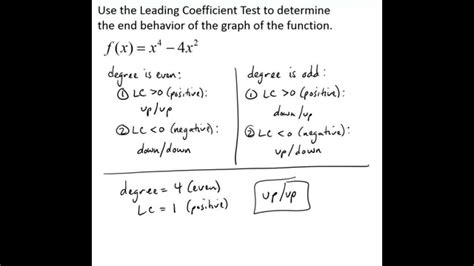 Use the Leading Coefficient Test to determine
the end behavior of the graph of the function.
f(x) = x⁴ − 4x²
degree is even:
① LC >0 (positive):
up/up
② LC <0 (negative):
down/down
degree is odd:
① LC >0 (positive):
down/up
② LC <0 (negative):
up/down
degree = 4 (even)
LC = 1 (positive)
up/up